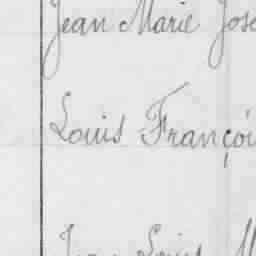 Jean Marie Jose
Louis Françoi
Jean Louis M